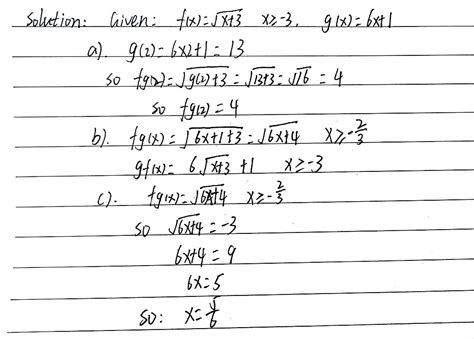 Solution: Given: f(x)=√x+3 x≥-3, g(x)=6x+1
a). g(2)=6x2+1=13
so fg(2)=√g(2)+3=√13+3=√16=4
so fg(2)=4
b). fg(x)=√6x+1+3=√6x+4 x≥-2/3
gf(x)= 6√x+3 +1 x≥-3
c). fg(x)=√6x+4 x≥-2/3
so √6x+4=-3
6x+4=9
6x=5
so: x=5/6